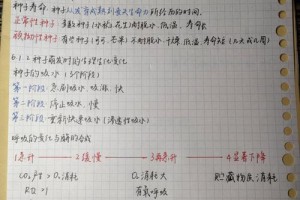 种子寿命:种子从发育成熟到丧失生命力所经历的时间。
正常性种子:多数种子(小粒、花生)耐脱水、低温、寿命长
顽拗性种子:有些种子(芒果)不耐脱水、低温、寿命短(几天或几周)
6.1.2 种子萌发时的生理生化变化
种子的吸水(3个阶段)
第一阶段:急剧吸水、吸胀、快
第二阶段:停止吸水、慢
第三阶段:重新快速吸水(渗透性吸水)
呼吸的变化与酶的合成
1急升 2缓慢 3再急升 4显著下降
CO₂产生>O₂消耗 O₂消耗大 贮藏物质消耗
RQ>1 有氧呼吸